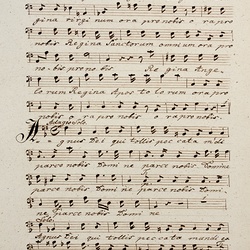 gina virginum ora pro nobis o ra pro
nobis Regina Sanctorum omnium ora pro
no-bis pro nobis Regina Ange
lorum Regina Apos to lorum ora pro
nobis o ra pro nobis o ra pro nobis.
Adagio Solo
Agnus Dei qui tollis pec cata mundi
parce nobis Domi ne parce nobis Domi
parce nobis Domi ne parce nobis Domi
ne parce nobis Domi ne
Solo.
Agnus Dei qui tollis peccata mundi